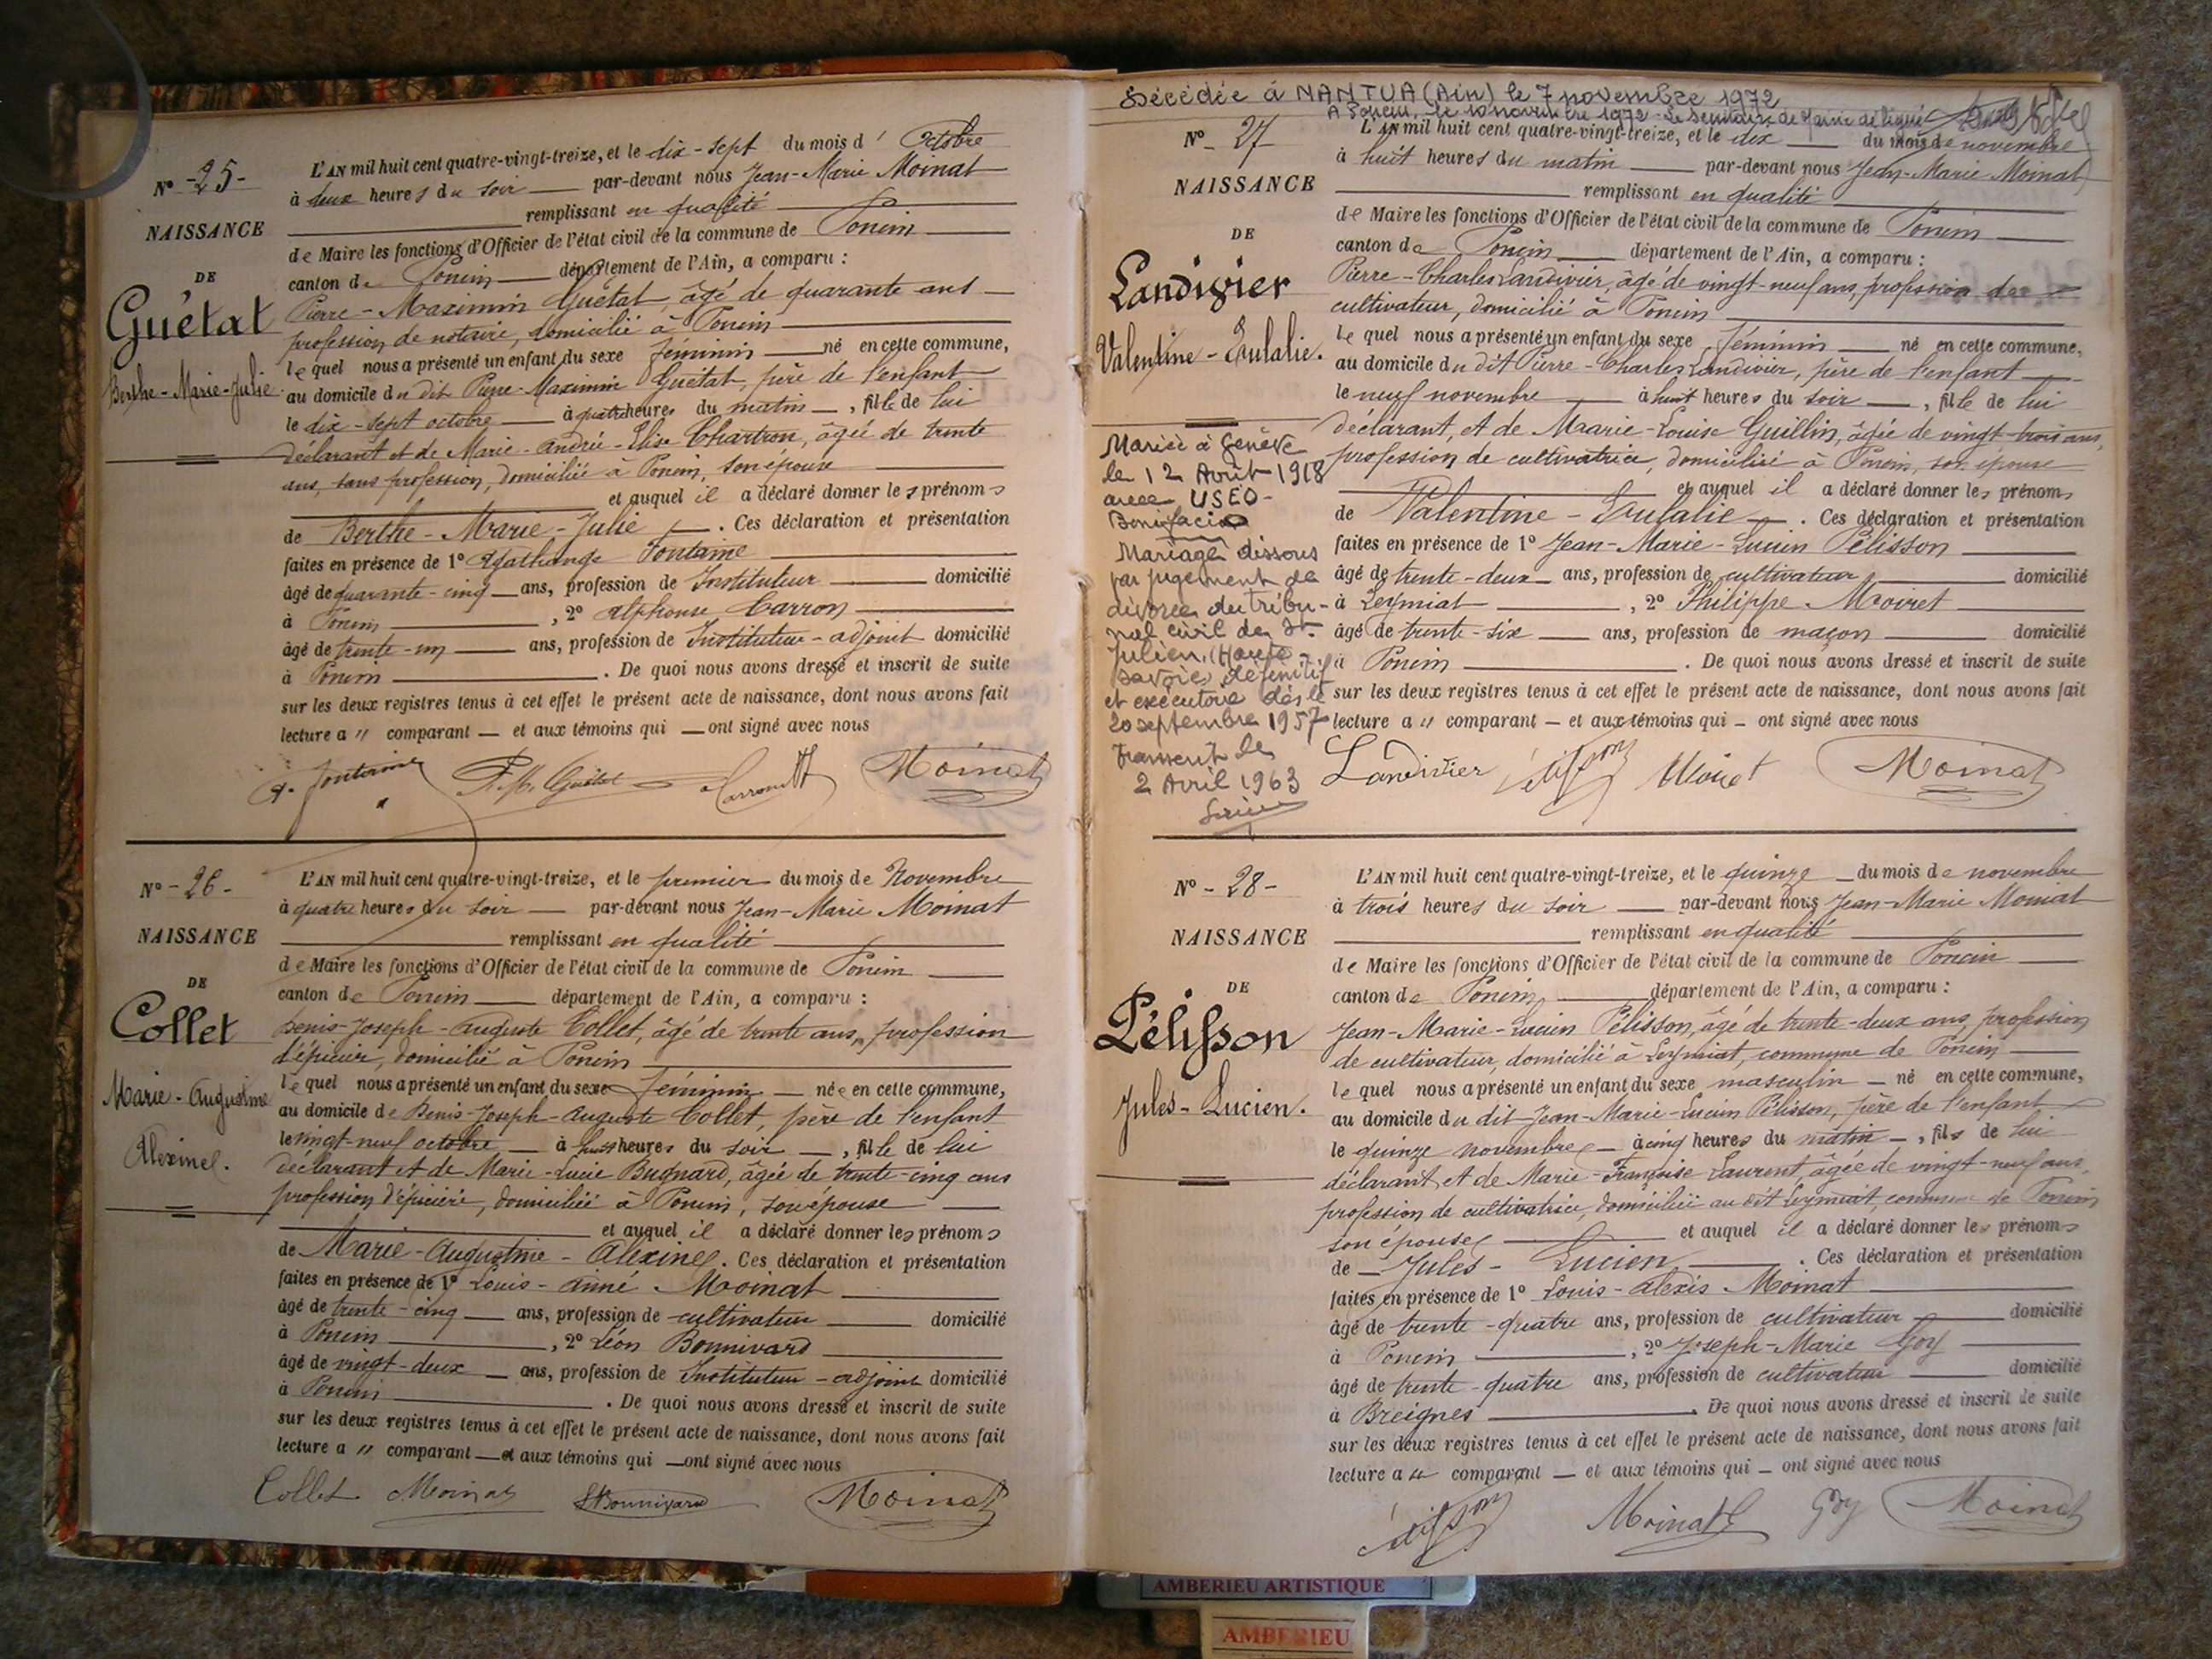 N° -25-
NAISSANCE
DE
Guétat
Berthe-Marie-Julie.
L'AN mil huit cent quatre-vingt-treize, et le dix-sept du mois d' Octobre
à deux heures du soir par-devant nous Jean-Marie Moinat
remplissant en qualité
de Maire les fonctions d'Officier de l'état civil de la commune de Poncin
canton de Poncin département de l'Ain, a comparu :
Pierre-Maximin Guétat, âgé de quarante ans
profession de notaire, domicilié à Poncin
lequel nous a présenté un enfant du sexe féminin né en cette commune,
au domicile du dit Pierre-Maximin Guétat, père de l'enfant
le dix-sept octobre à quatre heures du matin, fille de lui
déclarant et de Marie-Andrée-Elise Chartron, âgée de trente
ans, sans profession, domiciliée à Poncin, son épouse
et auquel il a déclaré donner les prénoms
de Berthe-Marie-Julie. Ces déclaration et présentation
faites en présence de 1° Agathange Fontaine
âgé de quarante-cinq ans, profession de Instituteur domicilié
à Poncin, 2° Alphonse Carron
âgé de trente-un ans, profession de Instituteur-adjoint domicilié
à Poncin. De quoi nous avons dressé et inscrit de suite
sur les deux registres tenus à cet effet le présent acte de naissance, dont nous avons fait
lecture a " comparant — et aux témoins qui — ont signé avec nous
A. Fontaine P. M. Guétat Moinat
N° -26-
NAISSANCE
DE
Collet
Marie-Augustine
Alexine.
L'AN mil huit cent quatre-vingt-treize, et le premier du mois de Novembre
à quatre heures du soir par-devant nous Jean-Marie Moinat
remplissant en qualité
de Maire les fonctions d'Officier de l'état civil de la commune de Poncin
canton de Poncin département de l'Ain, a comparu :
Denis-Joseph-Auguste Collet, âgé de trente ans, profession
d'épicier, domicilié à Poncin
lequel nous a présenté un enfant du sexe féminin — née en cette commune,
au domicile de Denis-Joseph-Auguste Collet, père de l'enfant
le vingt-neuf octobre à huit heures du soir, fille de lui
déclarant et de Marie-Lucie Bugnard, âgée de trente-cinq ans
profession d'épicière, domiciliée à Poncin, son épouse
et auquel il a déclaré donner les prénoms
de Marie-Augustine-Alexine. Ces déclaration et présentation
faites en présence de 1° Louis-Aimé Moinat
âgé de trente-cinq ans, profession de cultivateur domicilié
à Poncin, 2° Léon Bonnivard
âgé de vingt-deux ans, profession de Instituteur-adjoint domicilié
à Poncin. De quoi nous avons dressé et inscrit de suite
sur les deux registres tenus à cet effet le présent acte de naissance, dont nous avons fait
lecture a " comparant — et aux témoins qui — ont signé avec nous
Collet Moinat LBonnivard Moinat
Décédée à NANTUA (Ain) le 7 novembre 1972
A Poncin, le 10 novembre 1972 - Le Secrétaire de Mairie délégué
N° - 27
NAISSANCE
DE
Landivier
Valentine-Eulalie.
Mariée à Genève
le 12 Août 1918
avec USEO-
Bonifacio
Mariage dissous
par jugement de
divorce du tribu-
nal civil de St
Julien (Haute-
Savoie) définitif
et exécutoire dès le
20 septembre 1957
Transcrit le
2 Avril 1963
L'AN mil huit cent quatre-vingt-treize, et le dix du mois de novembre
à huit heures du matin par-devant nous Jean-Marie Moinat
remplissant en qualité
de Maire les fonctions d'Officier de l'état civil de la commune de Poncin
canton de Poncin département de l'Ain, a comparu :
Pierre-Charles Landivier, âgé de vingt-neuf ans, profession de
cultivateur, domicilié à Poncin
lequel nous a présenté un enfant du sexe féminin né en cette commune,
au domicile du dit Pierre-Charles Landivier, père de l'enfant
le neuf novembre à huit heures du soir, fille de lui
déclarant, et de Marie-Louise Guillin, âgée de vingt-trois ans,
profession de cultivatrice, domiciliée à Poncin, son épouse
et auquel il a déclaré donner les prénoms
de Valentine-Eulalie. Ces déclaration et présentation
faites en présence de 1° Jean-Marie-Lucien Pélisson
âgé de trente-deux ans, profession de cultivateur domicilié
à Leymiat, 2° Philippe Moiret
âgé de trente-six ans, profession de maçon domicilié
à Poncin. De quoi nous avons dressé et inscrit de suite
sur les deux registres tenus à cet effet le présent acte de naissance, dont nous avons fait
lecture a " comparant — et aux témoins qui — ont signé avec nous
Landivier Pélisson Moiret Moinat
N° - 28 -
NAISSANCE
DE
Pélisson
Jules-Lucien.
L'AN mil huit cent quatre-vingt-treize, et le quinze du mois de novembre
à trois heures du soir par-devant nous Jean-Marie Moinat
remplissant en qualité
de Maire les fonctions d'Officier de l'état civil de la commune de Poncin
canton de Poncin département de l'Ain, a comparu :
Jean-Marie-Lucien Pélisson, âgé de trente-deux ans, profession
de cultivateur, domicilié à Leymiat, commune de Poncin
lequel nous a présenté un enfant du sexe masculin — né en cette commune,
au domicile du dit Jean-Marie-Lucien Pélisson, père de l'enfant
le quinze novembre à cinq heures du matin, fils de lui
déclarant, et de Marie-Françoise Laurent, âgée de vingt-neuf ans,
profession de cultivatrice, domiciliée au dit Leymiat, commune de Poncin
son épouse et auquel il a déclaré donner les prénoms
de Jules-Lucien. Ces déclaration et présentation
faites en présence de 1° Louis-Alexis Moinat
âgé de trente-quatre ans, profession de cultivateur domicilié
à Poncin, 2° Joseph-Marie Goy
âgé de trente-quatre ans, profession de cultivateur domicilié
à Breignes. De quoi nous avons dressé et inscrit de suite
sur les deux registres tenus à cet effet le présent acte de naissance, dont nous avons fait
lecture a u comparant — et aux témoins qui — ont signé avec nous
Pélisson Moinat Goy Moinat
AMBERIEU ARTISTIQUE
AMBERIEU